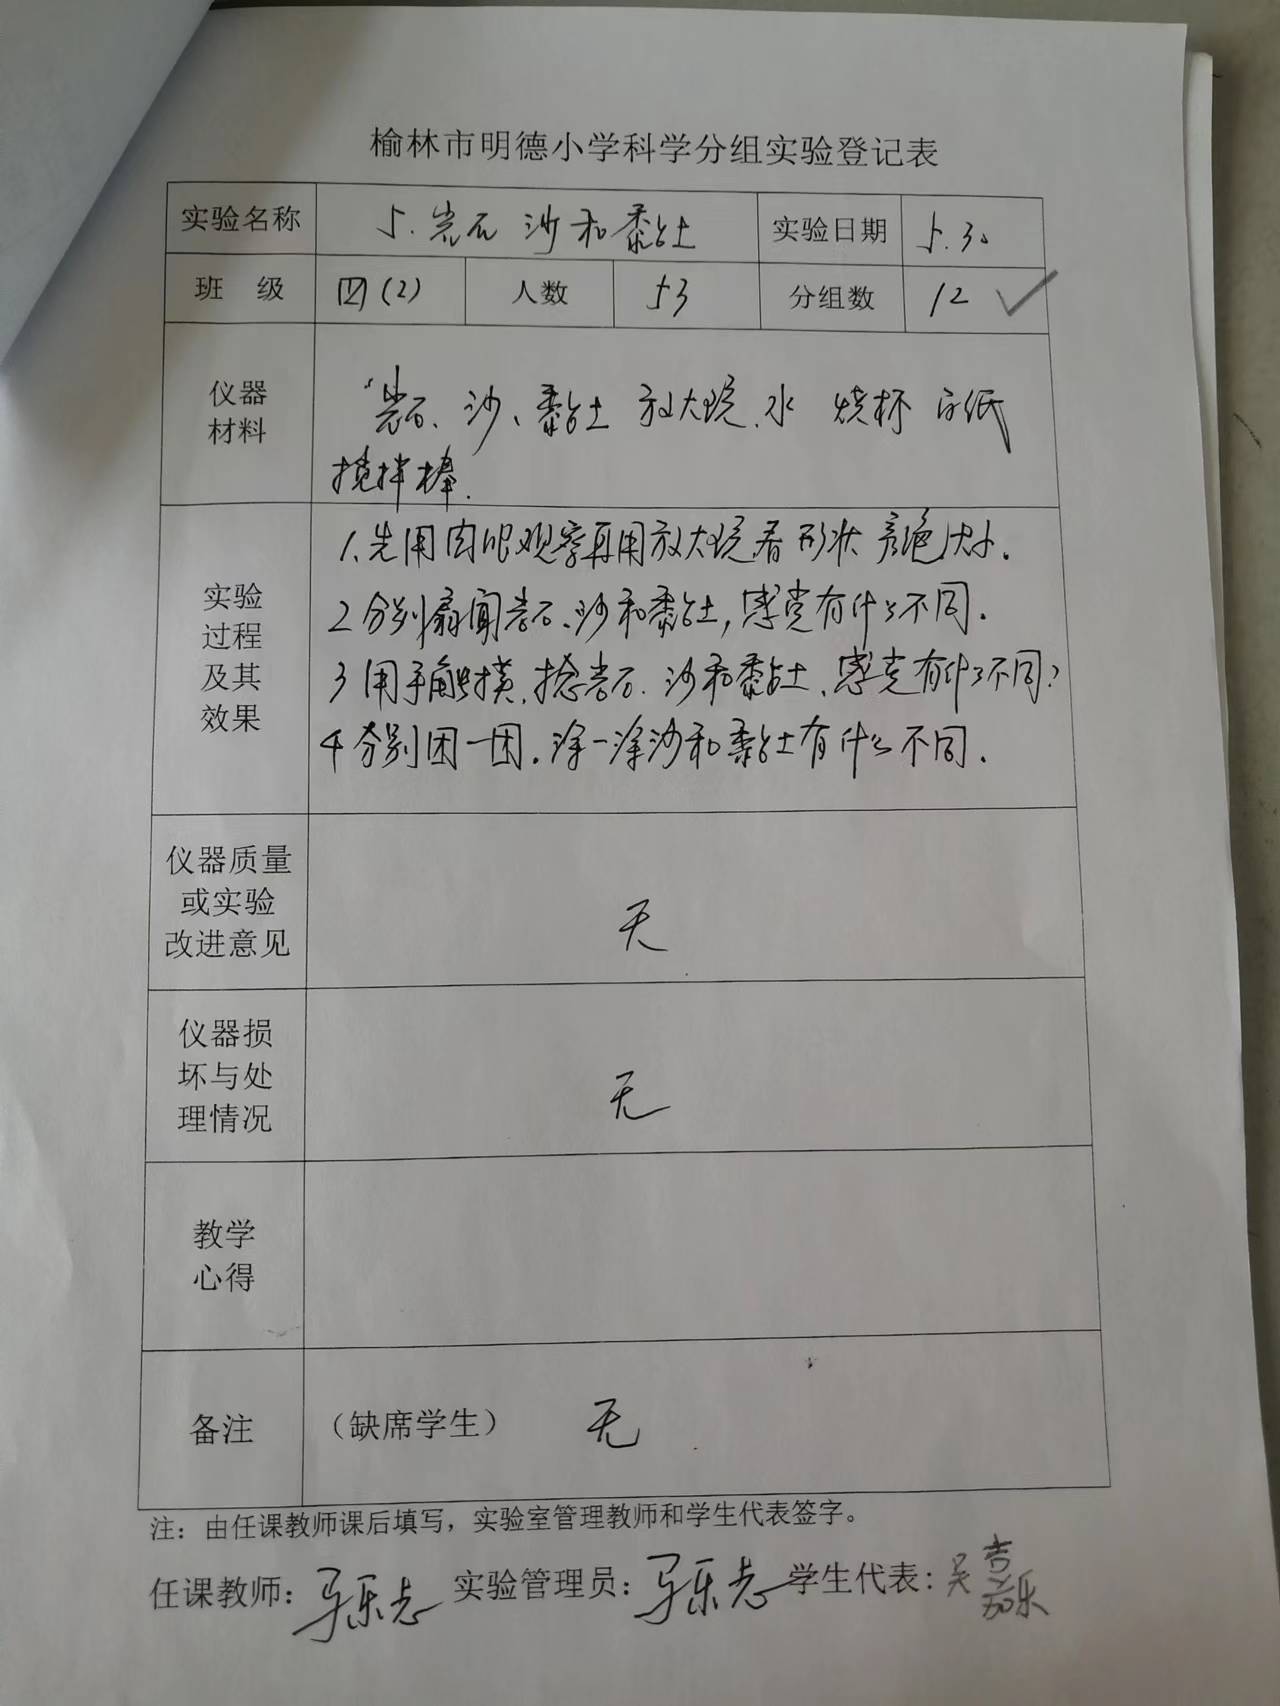 榆林市明德小学科学分组实验登记表
实验名称 5.岩石 沙和黏土 实验日期 5.30
班 级 四(2) 人数 53 分组数 12
仪器材料 岩石、沙、黏土 放大镜、水 烧杯 白纸
搅拌棒.
实验过程及其效果 1.先用肉眼观察再用放大镜看形状 颜色 大小.
2 分别扇闻岩石、沙和黏土,感觉有什么不同.
3 用手触摸,捻岩石、沙和黏土、感觉有什么不同?
4 分别团一团.涂一涂沙和黏土有什么不同.
仪器质量或实验改进意见 无
仪器损坏与处理情况 无
教学心得
备注 (缺席学生) 无
注:由任课教师课后填写,实验室管理教师和学生代表签字。
任课教师: 马乐志 实验管理员: 马乐志 学生代表: 吴嘉乐